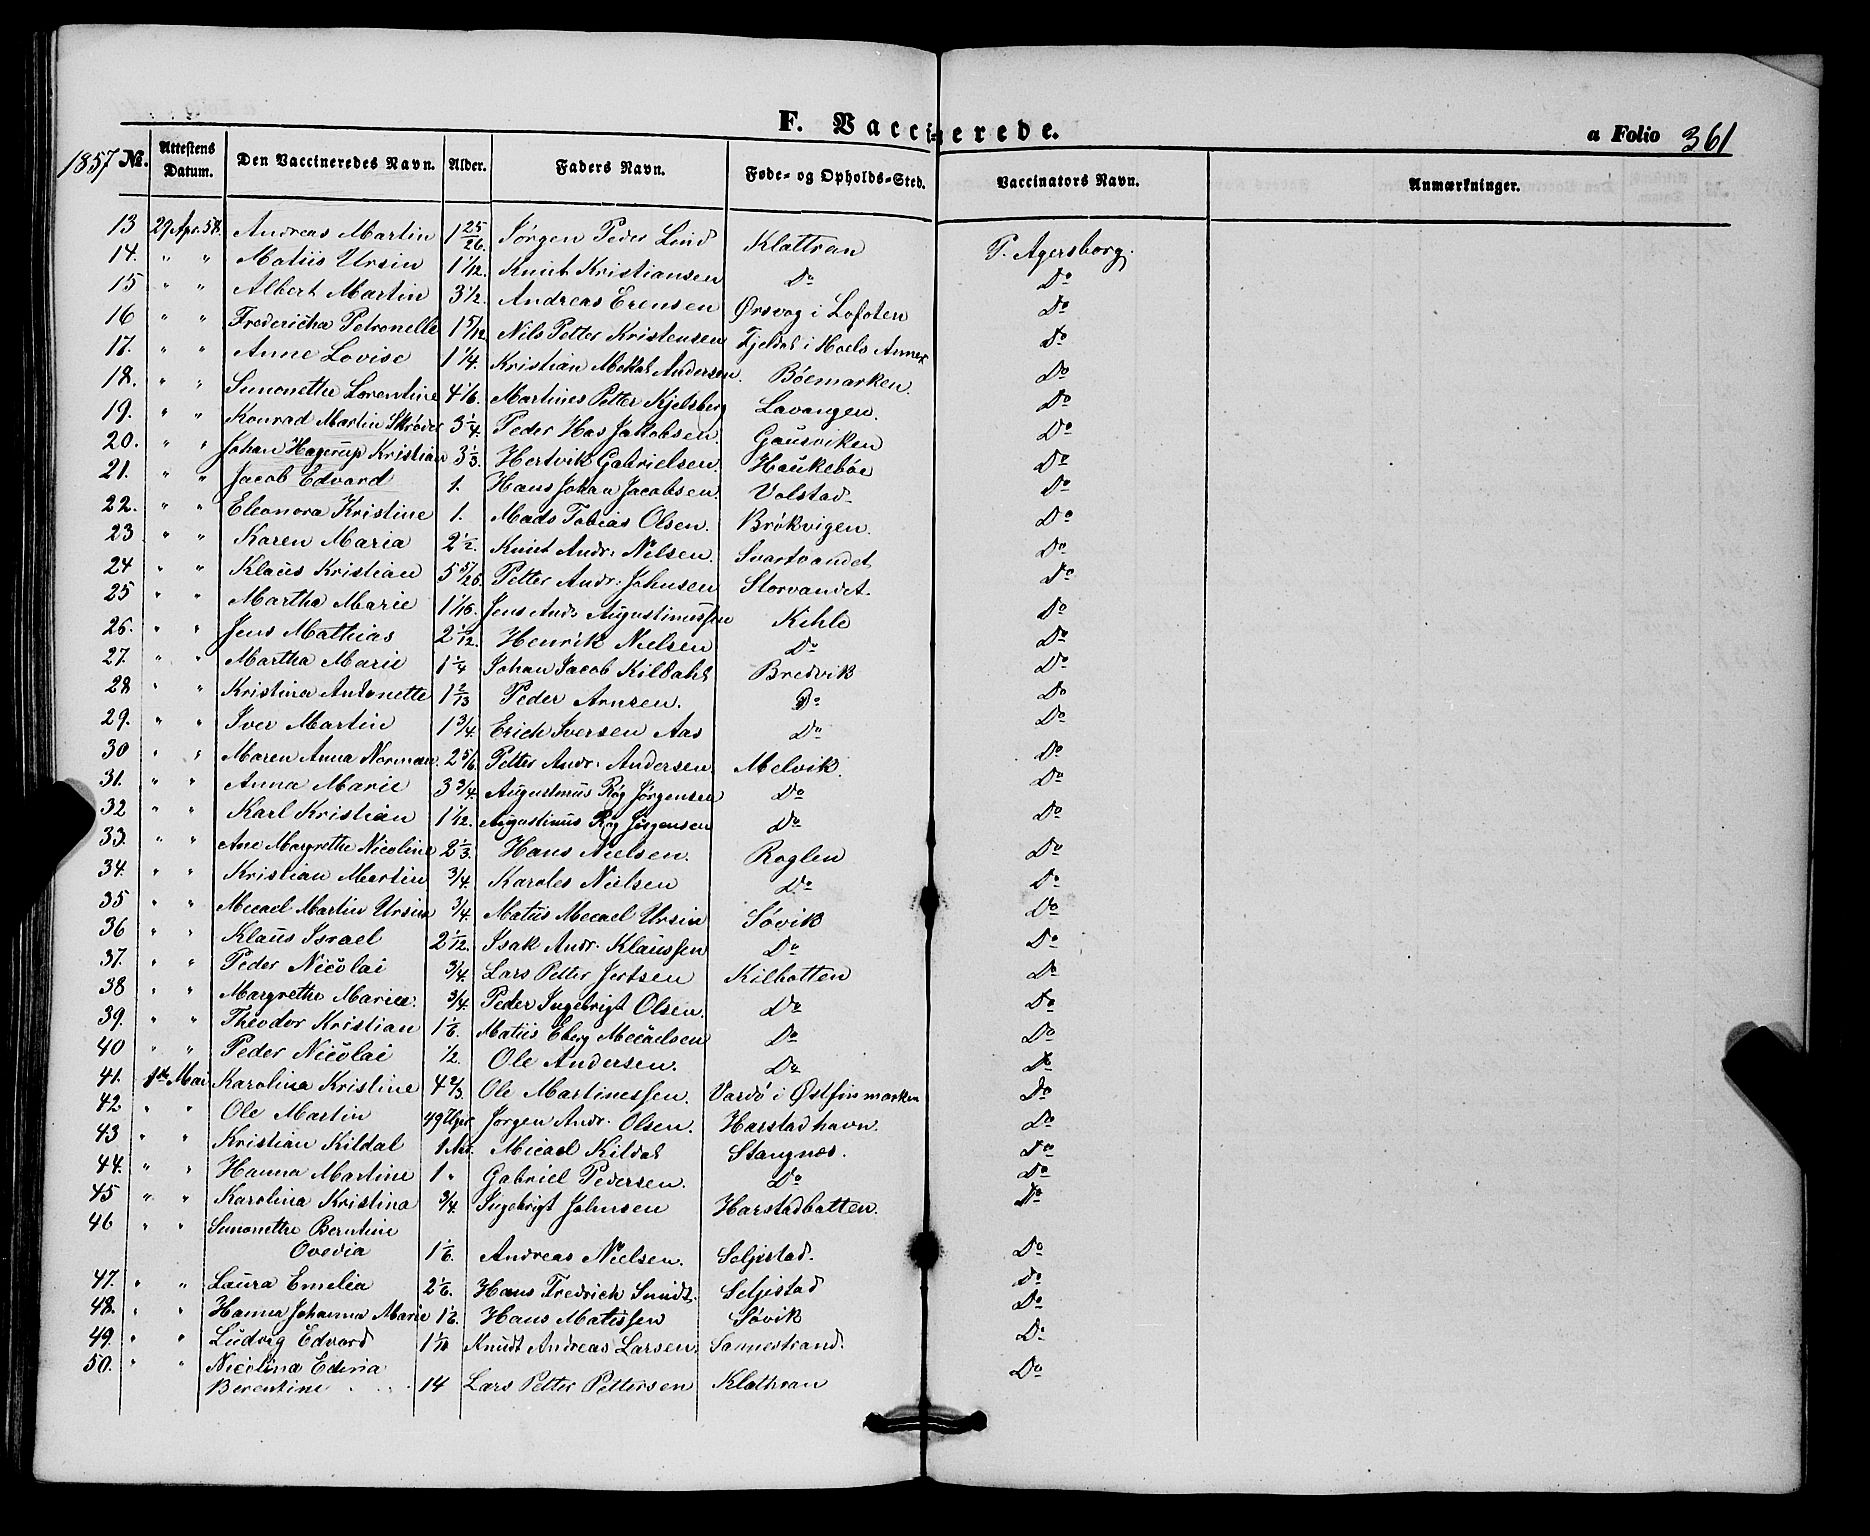 F. Vaccinerede.
a Folio 361
1857 No. Attestens Datum. Den Vaccineredes Navn. Alder. Faders Navn. Føde- og Opholds-Sted. Vaccinators Navn. Anmærkninger.
13 29 Apr. 58. Andreas Martin 1 25/26. Jørgen Peder Lind Klattran P. Agersborg.
14. " " Matiis Ursin 1 1/12. Knut Kristiansen Do Do
15 " " Albert Martin 3 1/2. Andreas Erensen Ørsvog i Lofoten Do
16 " " Fredericha Petronelle 1 5/12 Nils Petter Kristensen Fjeldal i Hoels Annex Do
17. " " Anne Lovise 1 1/4 Kristian Andersen. Bøemarken Do
18. " " Simonethe Lorentine 4 1/6. Martines Petter Kjelsberg Lavangen. Do
19. " " Konrad Martin Skrøder 3 1/4. Peder Has Jakobsen. Gausviken Do
20. " " Johan Hagerup Kristian 3 1/3. Hertvik Gabrielsen. Haukebøe Do
21. " " Jacob Edvard 1. Hans Johan Jacobsen. Volstad Do
22. " " Eleonora Kristine 1. Mads Tobias Olsen. Brøkvigen. Do
23 " " Karen Maria 2 1/2. Knut Andr: Nilsen. Svartvandet Do
24 " " Klaus Kristian 5 Petter Andr: Johnsen Storvandet. Do
25 " " Martha Marie 1 1/16. Jens Andr: Augustinussen Kihle Do
26. " " Jens Mathias 2 1/12. Henrik Nielsen Do Do
27. " " Martha Marie 1 1/4 Johan Jacob Kildahl Bredvik Do
28 " " Kristina Antonette 1 2/13 Peder Arnsen. Do Do
29. " " Iver Martin 1 3/4. Erich Iversen Aas Do Do
30 " " Maren Anna Norman. 2 5/6. Petter Andr: Andersen Melvik. Do
31. " " Anna Marie 3 3/4. Augustinus Røg Jørgensen Do Do
32 " " Karl Kristian 1 1/12. Augustinus Røg Jørgensen Do Do
33. " " Ane Margrethe Nicoline 2 1/3. Hans Nielsen. Roglen Do
34. " " Kristian Martin 3/4. Karoles Nielsen Do Do
35 " " Mecael Martin Ursin 3/4. Matiis Mecael Ursin Søvik Do
36 " " Klaus Israel 2 1/12. Isak Andr. Klaussen Do Do
37. " " Peder Nicolai 3/4. Lars Petter Jertsen Kilbotten Do
38 " " Margrethe Mariee. 3/4. Peder Ingebrigt Olsen. Do Do
39. " " Theodor Kristian 1 1/6. Matiis Eberg Mecaelsen Do Do
40 " " Peder Nicolai 1/2. Ole Andersen. Do Do
41. 1ste Mai Karolina Kristine 4 2/3. Ole Martinessen. Vardö i Østfinmarken Do
42 " " Ole Martin 49 Uger Jørgen Andr. Olsen. Harstadhavn. Do
43 " " Kristian Kildal 1 Aar. Micael Kildal Stangnes. Do
44. " " Hanna Martine 1 " Gabriel Pedersen. Do Do
45 " " Karolina Kristina 3/4. Ingebrigt Johnsen Harstadbotten. Do
46 " " Simonethe Berntine
Ovedia 1 1/6. Andreas Nielsen. Seljestad. Do
47. " " Laura Emelia 2 1/6. Hans Fredrich Smidt. Seljestad Do
48. " " Hanna Johanna Marie 1 1/6. Hans Matissen Søvik Do
49. " " Ludvig Edvard 1 1/10 Knudt Andreas Larsen. Sannestrand. Do
50. " " Nicolina Edina
Berentine 14 Lars Petter Pettersen Klathran Do